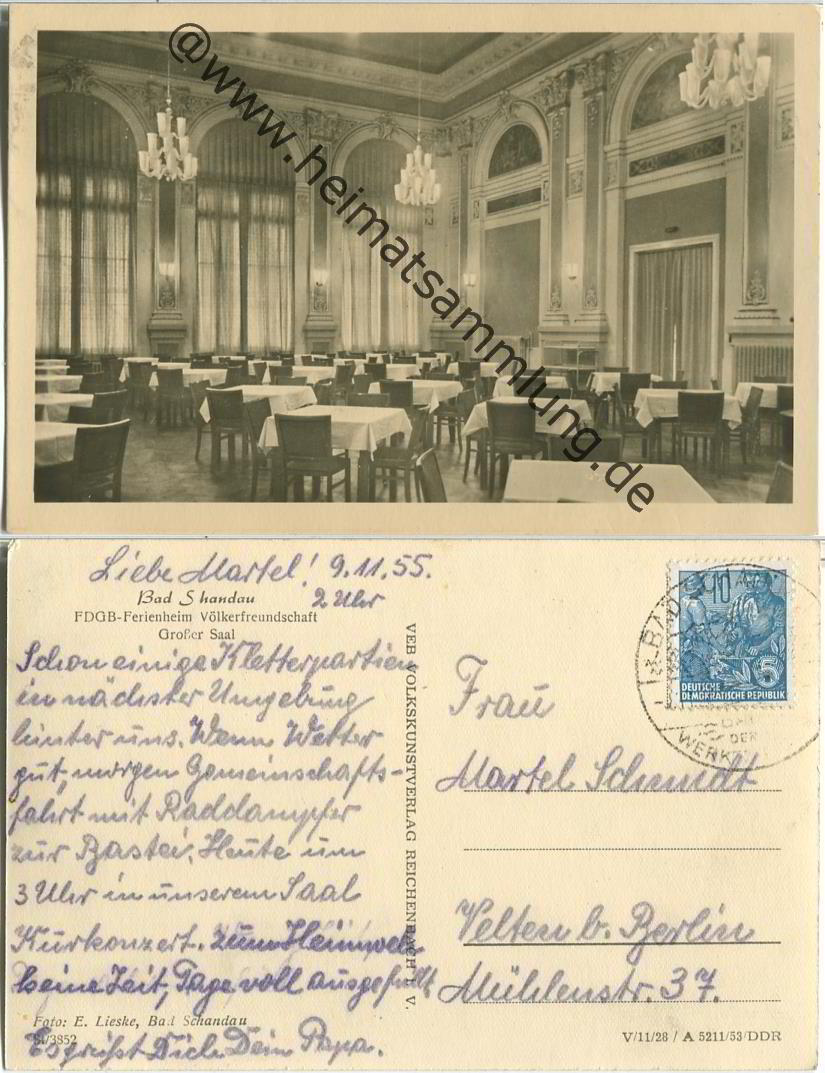 @www.heimatsammlung.de
Liebe Martel! 9.11.55.
2 Uhr
Bad Shandau
FDGB-Ferienheim Völkerfreundschaft
Großer Saal
Schon einige Kletterpartien
in nächster Umgebung
hinter uns. Wenn Wetter
gut, morgen Gemeinschafts-
fahrt mit Raddampfer
zur Bastei. Heute um
3 Uhr in unserem Saal
Kurkonzert. Zum Heimweh
keine Zeit, Tage voll ausgefüllt.
Foto: E. Lieske, Bad Schandau
Es grüßt Dich Dein Papa.
VEB VOLKSKUNSTVERLAG REICHENBACH I. V.
10
5
DEUTSCHE
DEMOKRATISCHE REPUBLIK
BAD
DER
WERK
Frau
Martel Schmidt
Velten b. Berlin
Mühlenstr. 37.
V/11/28 / A 5211/53/DDR